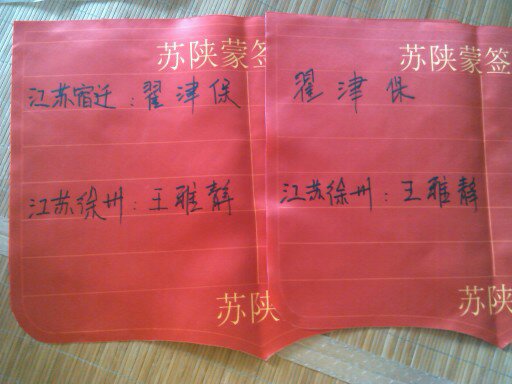 苏陕蒙签
江苏宿迁：翟津保
江苏徐州：王雅静
苏陕
苏陕蒙签
翟津保
江苏徐州：王雅静
苏陕